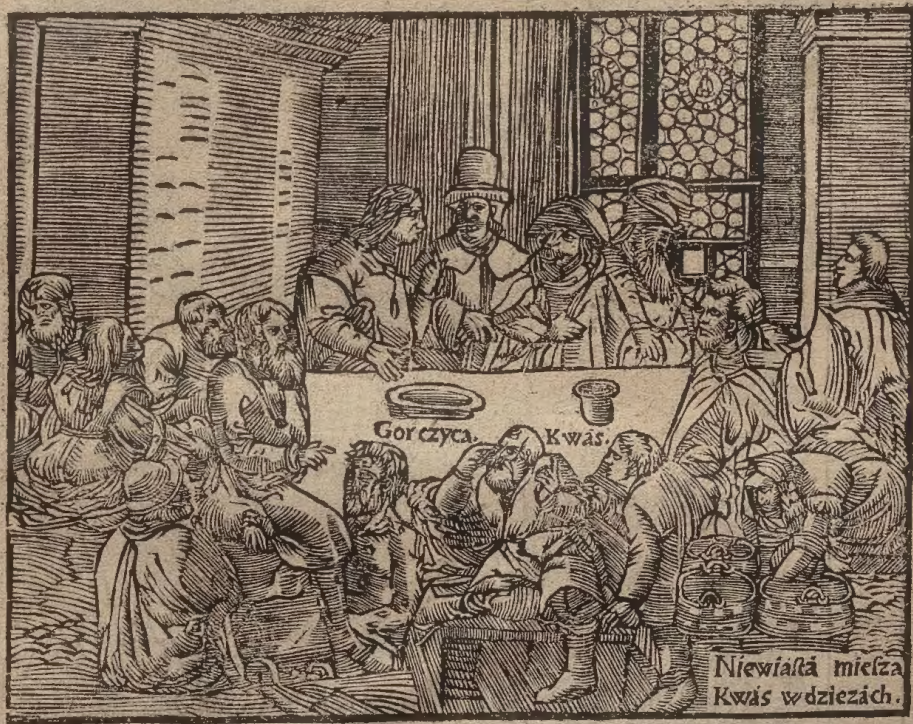 Gorczyca. Kwás.
Niewiáſtá mieſza
Kwás w dzieżách.